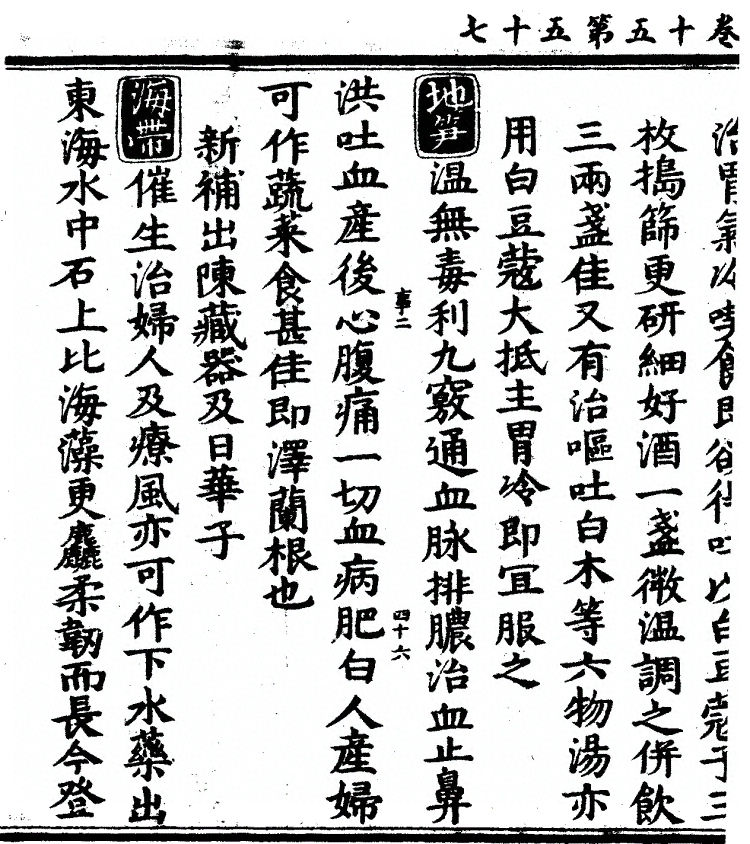 卷十五第五十七
治胃氣冷喫食即欲得吐以白豆蔻子三
枚搗篩更研細好酒一盞微溫調之併飲
三兩盞佳又有治嘔吐白木等六物湯亦
用白豆蔻大抵主胃冷即宜服之
地笋溫無毒利九竅通血脉排膿治血止鼻
事二 四十六
洪吐血產後心腹痛一切血病肥白人產婦
可作蔬菜食甚佳即澤蘭根也
新補出陳藏器及日華子
海帶催生治婦人及療風亦可作下水藥出
東海水中石上比海藻更麤柔韌而長今登